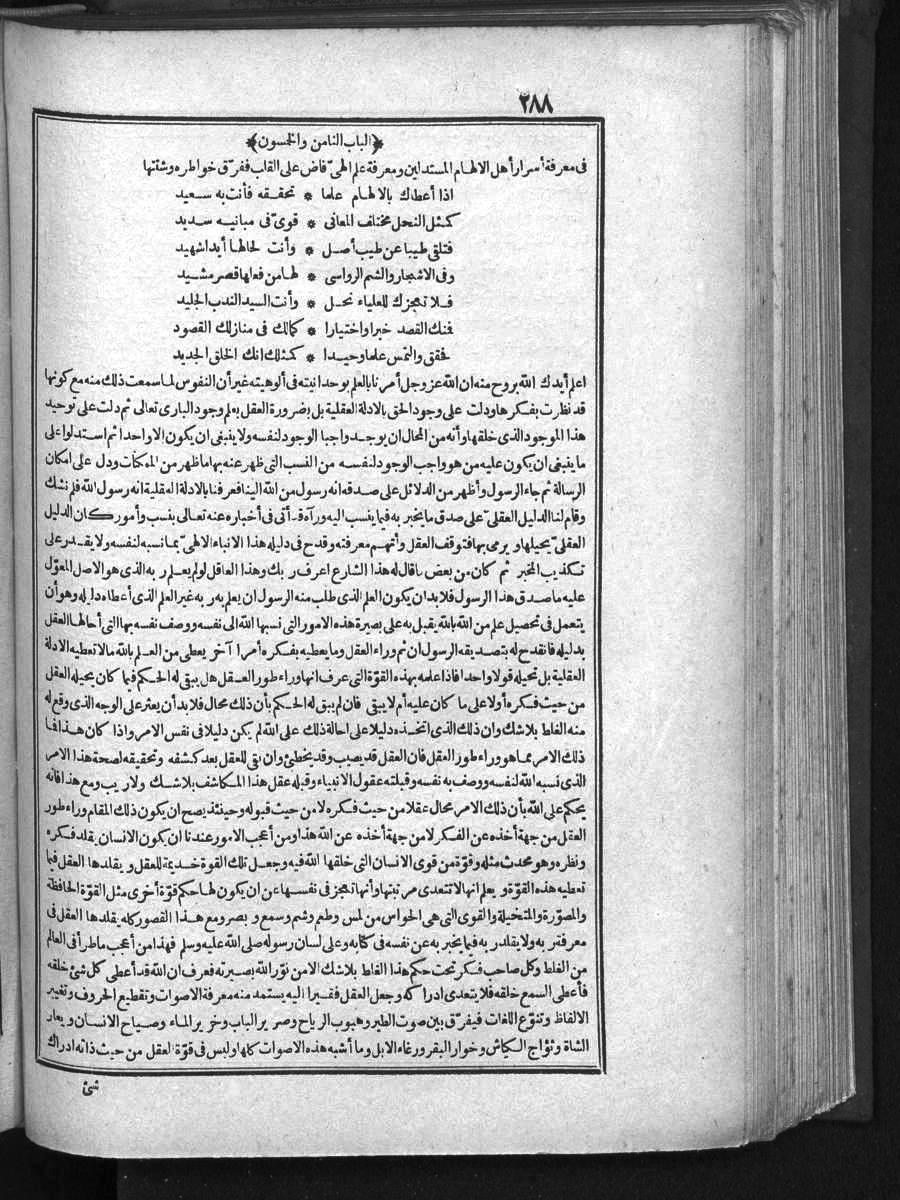 ٢٨٨
﴿الباب الثامن والخمسون﴾
فى معرفة أسرار أهل الالهام المستدلين ومعرفة علم الهىّ فاض على القلب ففرّق خواطره وشتتها
اذا أعطاك بالالهام علما * تحققه فأنت به سعيد
كمثل النحل مختلف المعانى * قوىّ فى مبانيه سديد
فتلقى طيبا عن طيب أصل * وأنت لحالها أبدا شهيد
وفى الاشجار والشم الرواسى * لها من فعلها قصر مشيد
فلا تعجزك للعلياء نحل * وأنت السيد الندب الجليد
فمنك القصد خبرا واختيارا * كمالك فى منازلك القصود
فحقق والتمس علما وحيدا * كمثلك انك الخلق الجديد
اعلم أيدك الله بروح منه ان الله عز وجل أمرنا بالعلم بوحدانيته فى ألوهيته غير أن النفوس لما سمعت ذلك منه مع كونها
قد نظرت بفكرها ودلت على وجود الحق بالادلة العقلية بل بضرورة العقل بعلم وجود البارى تعالى ثم دلت على توحيد
هذا الموجود الذى خلقها وأنه من المحال ان يوجد واجبا الوجود لنفسه ولا ينبغى ان يكون الا واحدا ثم استدلوا على
ما ينبغى ان يكون عليه من هو واجب الوجود لنفسه من النسب التى ظهر عنه بها ما ظهر من الممكنات ودل على امكان
الرسالة ثم جاء الرسول وأظهر من الدلائل على صدقه انه رسول من الله الينا فعرفنا بالادلة العقلية انه رسول الله فلم نشك
وقام لنا الدليل العقلىّ على صدق ما يخبر به فيما ينسب اليه ورآه قد أتى فى أخباره عنه تعالى بنسب وأمور كان الدليل
العقلىّ يحيلها ويرمى بها فتوقف العقل وأتهم معرفته وقدح فى دليله هذا الانباء الالهىّ بما نسبه لنفسه ولا يقدر على
تكذيب المخبر ثم كان من بعض ما قال له هذا الشارع اعرف ربك وهذا العاقل لو لم يعلم ربه الذى هو الاصل المعوّل
عليه ما صدق هذا الرسول فلا بد ان يكون العلم الذى طلب منه الرسول ان يعلم به ربه غير العلم الذى أعطاه دليله وهو أن
يتعمل فى تحصيل علم من الله بالله يقبل به على بصيرة هذه الامور التى نسبها الله الى نفسه ووصف نفسه بها التى أحالها العقل
بدليله فانقدح له بتصديقه الرسول ان ثم وراء العقل وما يعطيه بفكره أمرا آخر يعطى من العلم بالله ما لا تعطيه الادلة
العقلية بل تحيله قولا واحدا فاذا علمه بهذه القوّة التى عرف انها وراء طور العقل هل يبقى له الحكم فيما كان يحيله العقل
من حيث فكره أولا على ما كان عليه أم لا يبقى فان لم يبق له الحكم بأن ذلك محال فلا بد أن يعثر على الوجه الذى وقع له
منه الغلط بلا شك وان ذلك الذى اتخذه دليلا على احالة ذلك على الله لم يكن دليلا فى نفس الامر واذا كان هذا فما
ذلك الامر مما هو وراء طور العقل فان العقل قد يصيب وقد يخطئ وان بقى للعقل بعد كشفه وتحقيقه لصحة هذا الامر
الذى نسبه الله لنفسه ووصف به نفسه وقبلته عقول الانبياء وقبله عقل هذا المكاشف بلا شك ولا ريب ومع هذا فانه
يحكم على الله بأن ذلك الامر محال عقلا من حيث فكره لا من حيث قبوله وحينئذ يصح ان يكون ذلك المقام وراء طور
العقل من جهة أخذه عن الفكر لا من جهة أخذه عن الله هذا ومن أعجب الامور عندنا ان يكون الانسان يقلد فكره
ونظره وهو محدث مثله وقوّة من قوى الانسان التى خلقها الله فيه وجعل تلك القوة خديمة للعقل ويقلدها العقل فيما
تعطيه هذه القوّة ويعلم انها لا تتعدى مرتبتها وأنها تعجز فى نفسها عن ان يكون لها حكم قوّة أخرى مثل القوّة الحافظة
والمصوّرة والمتخيلة والقوى التى هى الحواس من لمس وطعم وشم وسمع وبصر ومع هذا القصور كله يقلدها العقل فى
معرفة ربه ولا يقلد ربه فيما يخبر به عن نفسه فى كتابه وعلى لسان رسوله صلى الله عليه وسلم فهذا من أعجب ما طرأ فى العالم
من الغلط وكل صاحب فكر تحت حكم هذا الغلط بلا شك الا من نوّر الله بصيرته فعرف ان الله قد أعطى كل شئ خلقه
فأعطى السمع خلقه فلا يتعدى ادراكه وجعل العقل فقيرا اليه يستمد منه معرفة الاصوات وتقطيع الحروف وتغيير
الالفاظ وتنوّع اللغات فيفرّق بين صوت الطير وهبوب الرياح وصرير الباب وخرير الماء وصياح الانسان ويعار
الشاة وثؤاج الكباش وخوار البقر ورغاء الابل وما أشبه هذه الاصوات كلها وليس فى قوّة العقل من حيث ذاته ادراك
شئ